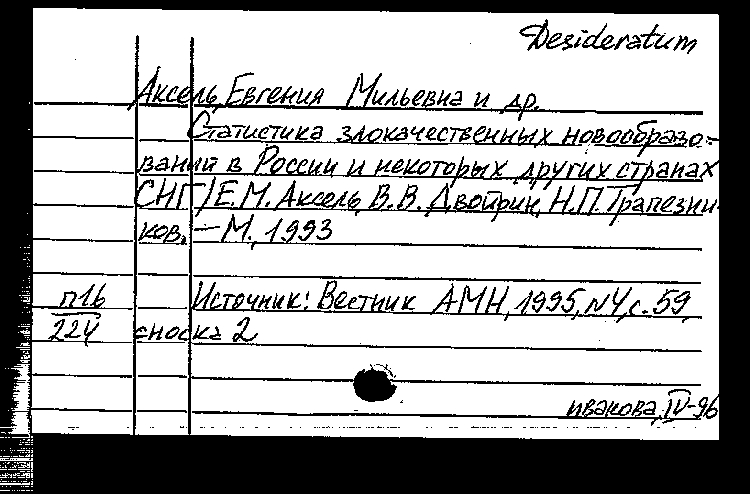 Desideratum
Аксель, Евгения Мильевна и др.
Статистика злокачественных новообразо-
ваний в России и некоторых других странах
СНГ / Е.М. Аксель, В.В. Двойрин, Н.П. Трапезни-
ков. — М., 1993
п16 Источник: Вестник АМН, 1995, N4, с. 59,
224 сноска 2
ивакова, IV-96